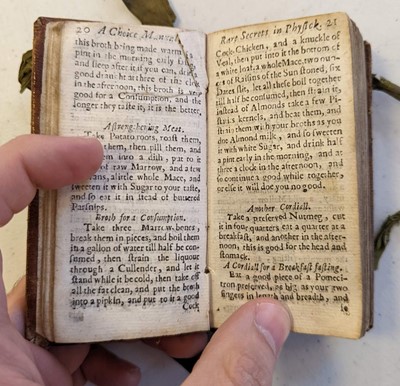 20 A Choice Manual
this broth being made warm
pint in the morning early
and sleep after it if you can,
good draught at three of the clock
in the afternoon, this broth is very
good for a Consumption, and the
longer they taste it, it is the better.
A strengthening Meat.
Take Potato roots, roast them,
then pill them, and
them into a dish, put to it
of raw Marrow, and a few
a little whole Mace, and
sweeten it with Sugar to your taste,
and so eat it in stead of buttered
Parsnips.
Broth for a Consumption.
Take three Marrow bones,
break them in pieces, and boil them
in a gallon of water till half be con-
sumed, then strain the liquour
through a Cullender, and let it
stand while it be cold, then take off
all the fat clean, and put the broth
into a pipkin, and put to it a good
Cock
Rare Secrets in Physick. 21
Cock-Chicken, and a knuckle of
Veal, then put into it the bottom of
a white loaf, a whole Mace, two oun-
ces of Raisins of the Sun stoned, six
Dates slit, let all these boil together
till half be consumed, then strain it,
instead of Almonds take a few Pi-
kernels, and beat them, and
strain them with your broth as you
doe Almond milk, and so sweeten
it with white Sugar, and drink half
a pint early in the morning, and at
three a clock in the afternoon, and
so continue a good while together,
or else it will doe you no good.
Another Cordiall.
Take a preserved Nutmeg, cut
it in four quarters eat a quarter at a
breakfast, and another in the after-
noon, this is good for the head and
stomack.
A Cordiall for a Breakfast fasting.
Eat a good piece of a Pomeci-
tron preserved, as big as your two
fingers in length and breadth, and